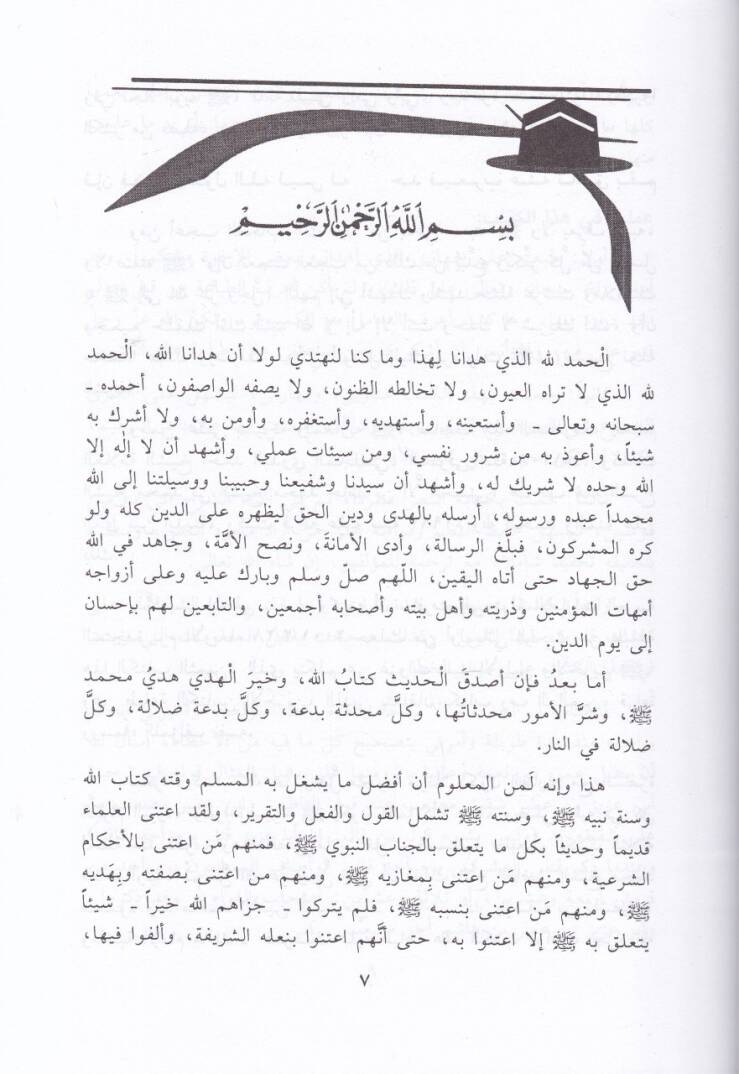 بسم الله الرحمن الرحيم
الْحمد لله الذي هدانا لِهذا وما كنا لنهتدي لولا أن هدانا الله، الْحمد
لله الذي لا تراه العيون، ولا تخالطه الظنون، ولا يصفه الواصفون، أحمده ـ
سبحانه وتعالى ـ وأستعينه، وأستهديه، وأستغفره، وأومن به، ولا أشرك به
شيئاً، وأعوذ به من شرور نفسي، ومن سيئات عملي، وأشهد أن لا إلٰه إلا
الله وحده لا شريك له، وأشهد أن سيدنا وشفيعنا وحبيبنا ووسيلتنا إلى الله
محمداً عبده ورسوله، أرسله بالهدى ودين الحق ليظهره على الدين كله ولو
كره المشركون، فبلَّغ الرسالة، وأدى الأمانةَ، ونصح الأمَّة، وجاهد في الله
حق الجهاد حتى أتاه اليقين، اللَّهم صلّ وسلم وبارك عليه وعلى أزواجه
أمهات المؤمنين وذريته وأهل بيته وأصحابة أجمعين، والتابعين لهم بإحسان
إلى يوم الدين.
أما بعدُ فإن أصدقَ الْحديث كتابُ الله، وخيرَ الْهدي هديُ محمد
ﷺ، وشرَّ الأمور محدثاتُها، وكلَّ محدثة بدعة، وكلَّ بدعة ضلالة، وكلَّ
ضلالة في النار.
هذا وإنه لَمن المعلوم أن أفضل ما يشغل به المسلم وقته كتاب الله
وسنة نبيه ﷺ، وسنته ﷺ تشمل القول والفعل والتقرير، ولقد اعتنى العلماء
قديماً وحديثاً بكل ما يتعلق بالجناب النبوي ﷺ، فمنهم مَن اعتنى بالأحكام
الشرعية، ومنهم مَن اعتنى بِمغازيه ﷺ، ومنهم من اعتنى بصفته وبِهَديه
ﷺ، ومنهم مَن اعتنى بنسبه ﷺ، فلم يتركوا ـ جزاهم الله خيراً ـ شيئاً
يتعلق به ﷺ إلا اعتنوا به، حتى أنَّهم اعتنوا بنعله الشريفة، وألفوا فيها،
٧